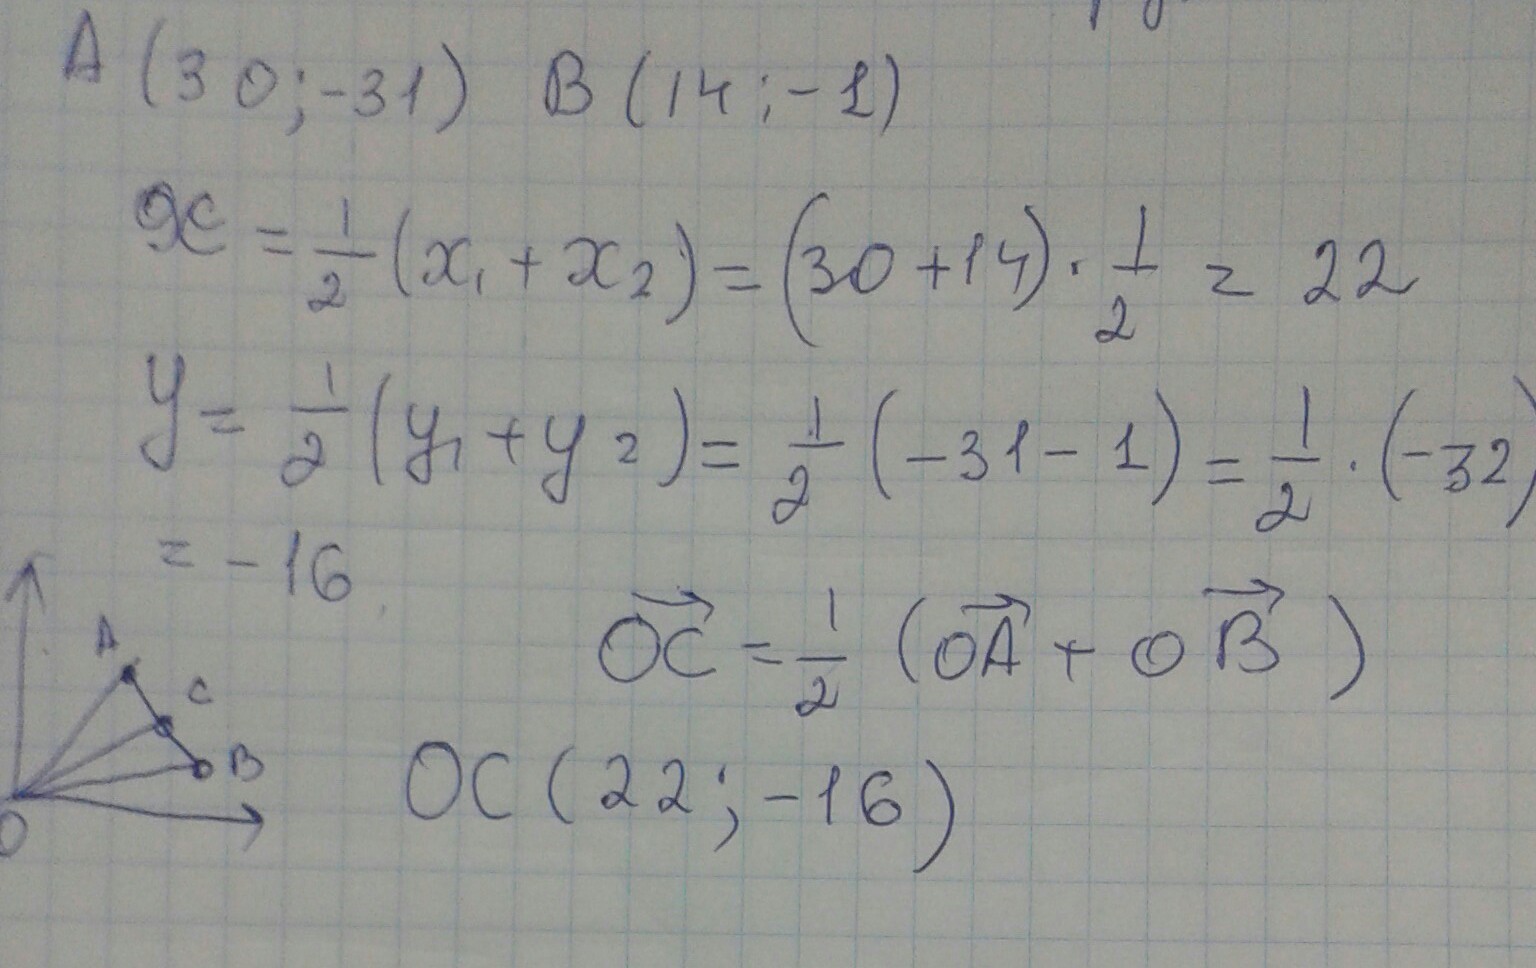 A (30; -31) B (14; -1)
x = 1/2 (x₁ + x₂) = (30 + 14) · 1/2 = 22
y = 1/2 (y₁ + y₂) = 1/2 (-31 - 1) = 1/2 · (-32)
= -16
A
C
B
O
→OC = 1/2 (→OA + →OB)
OC (22; -16)